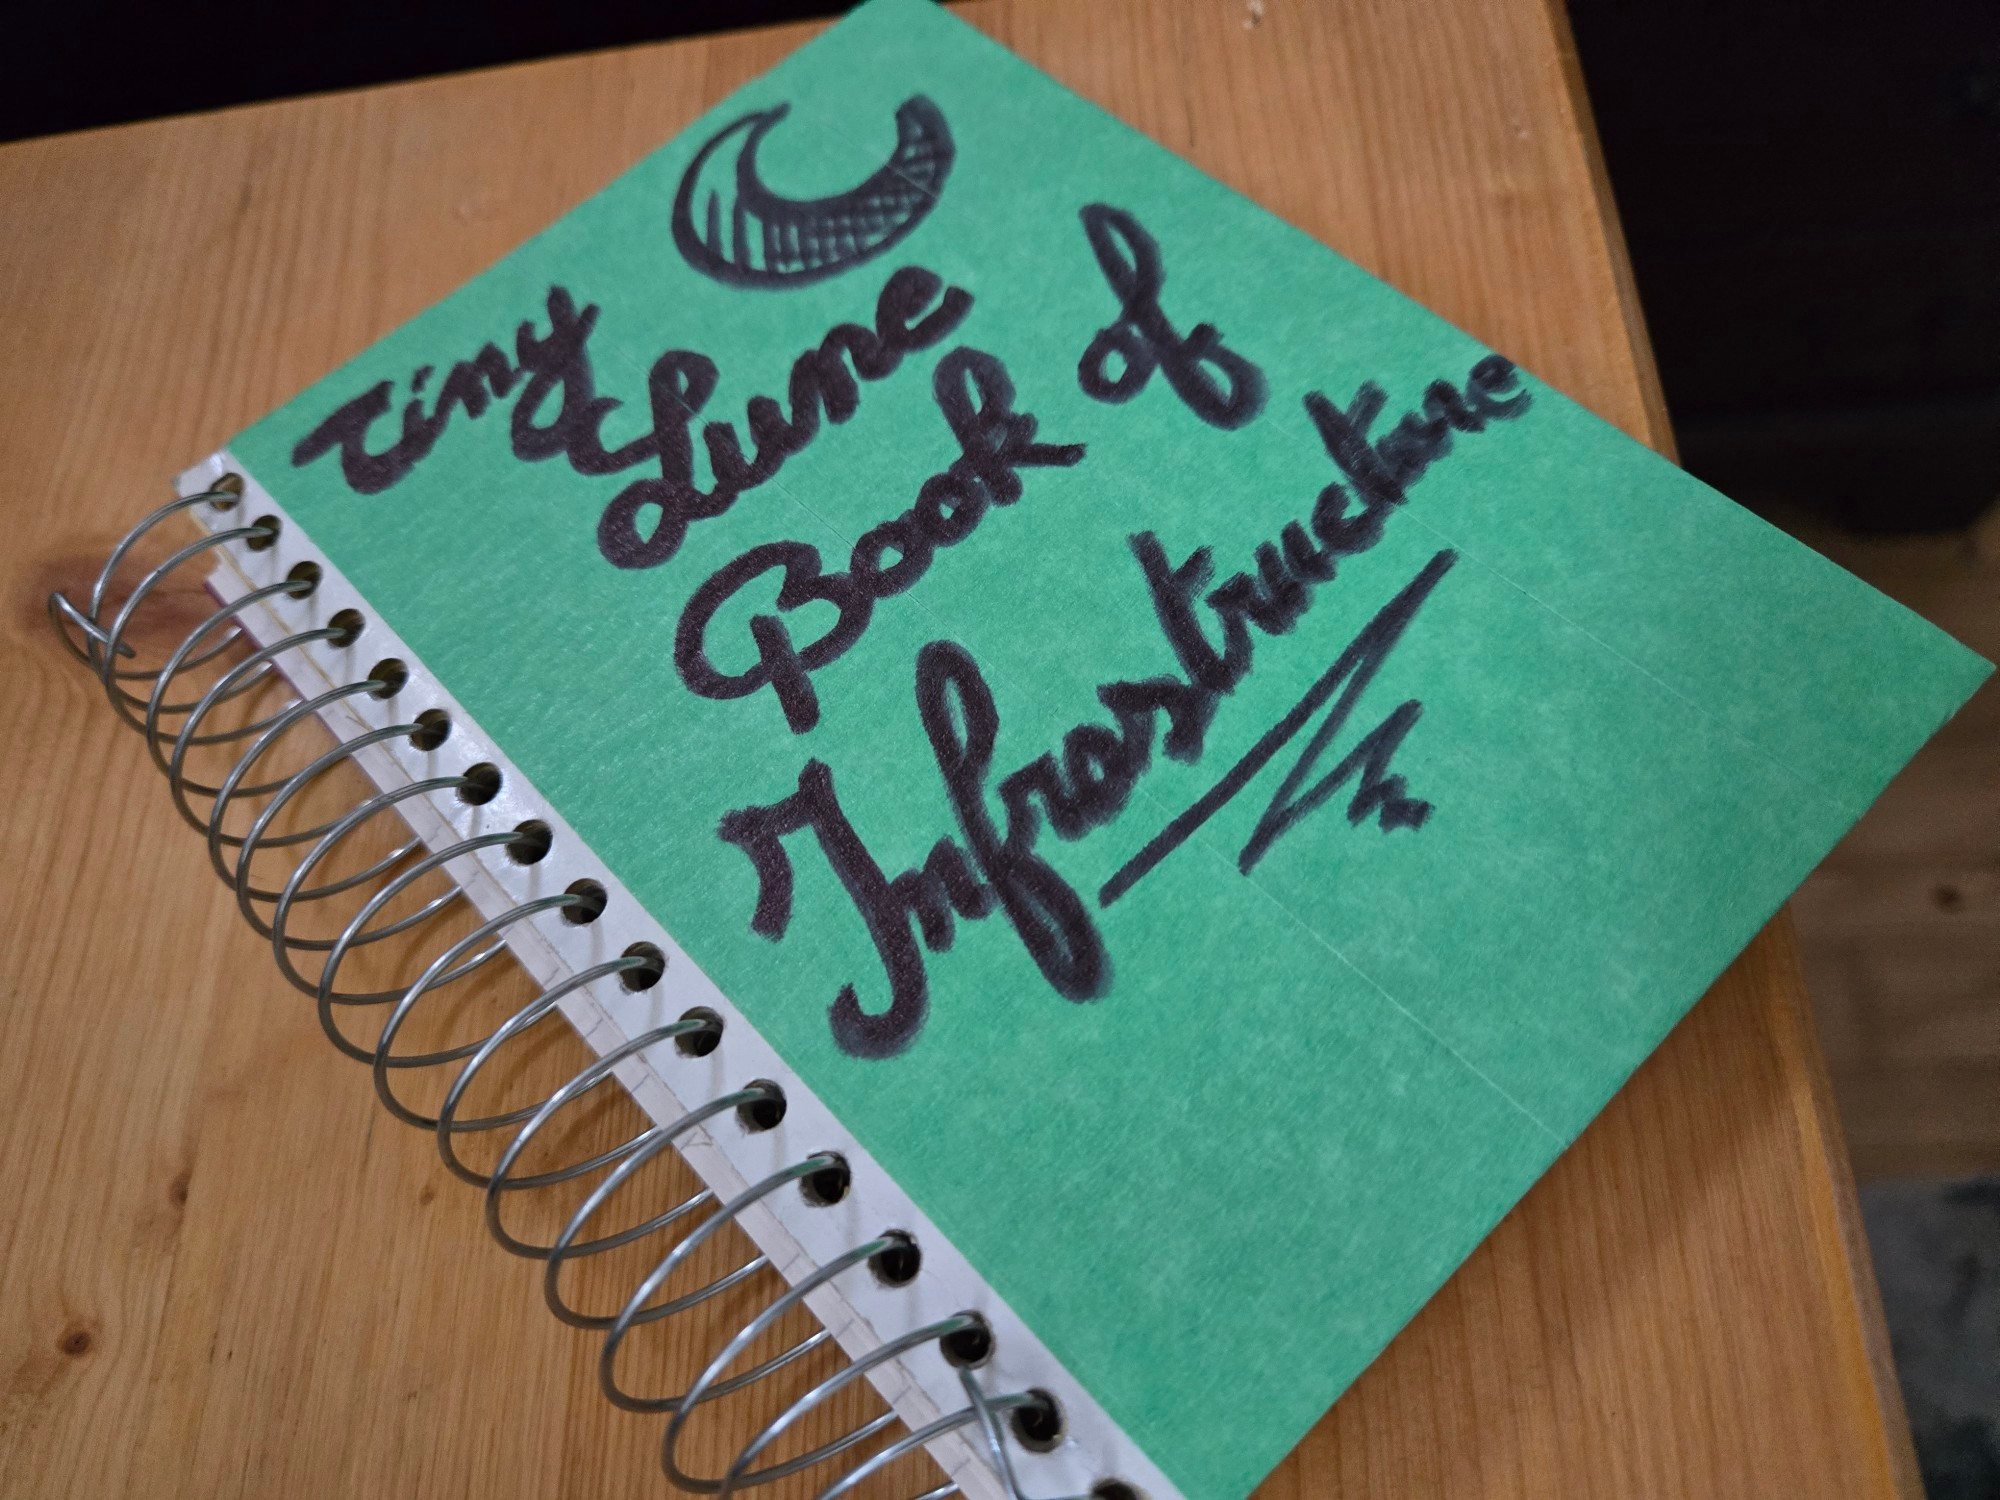 Tiny
Lune
Book of
Infrastructure